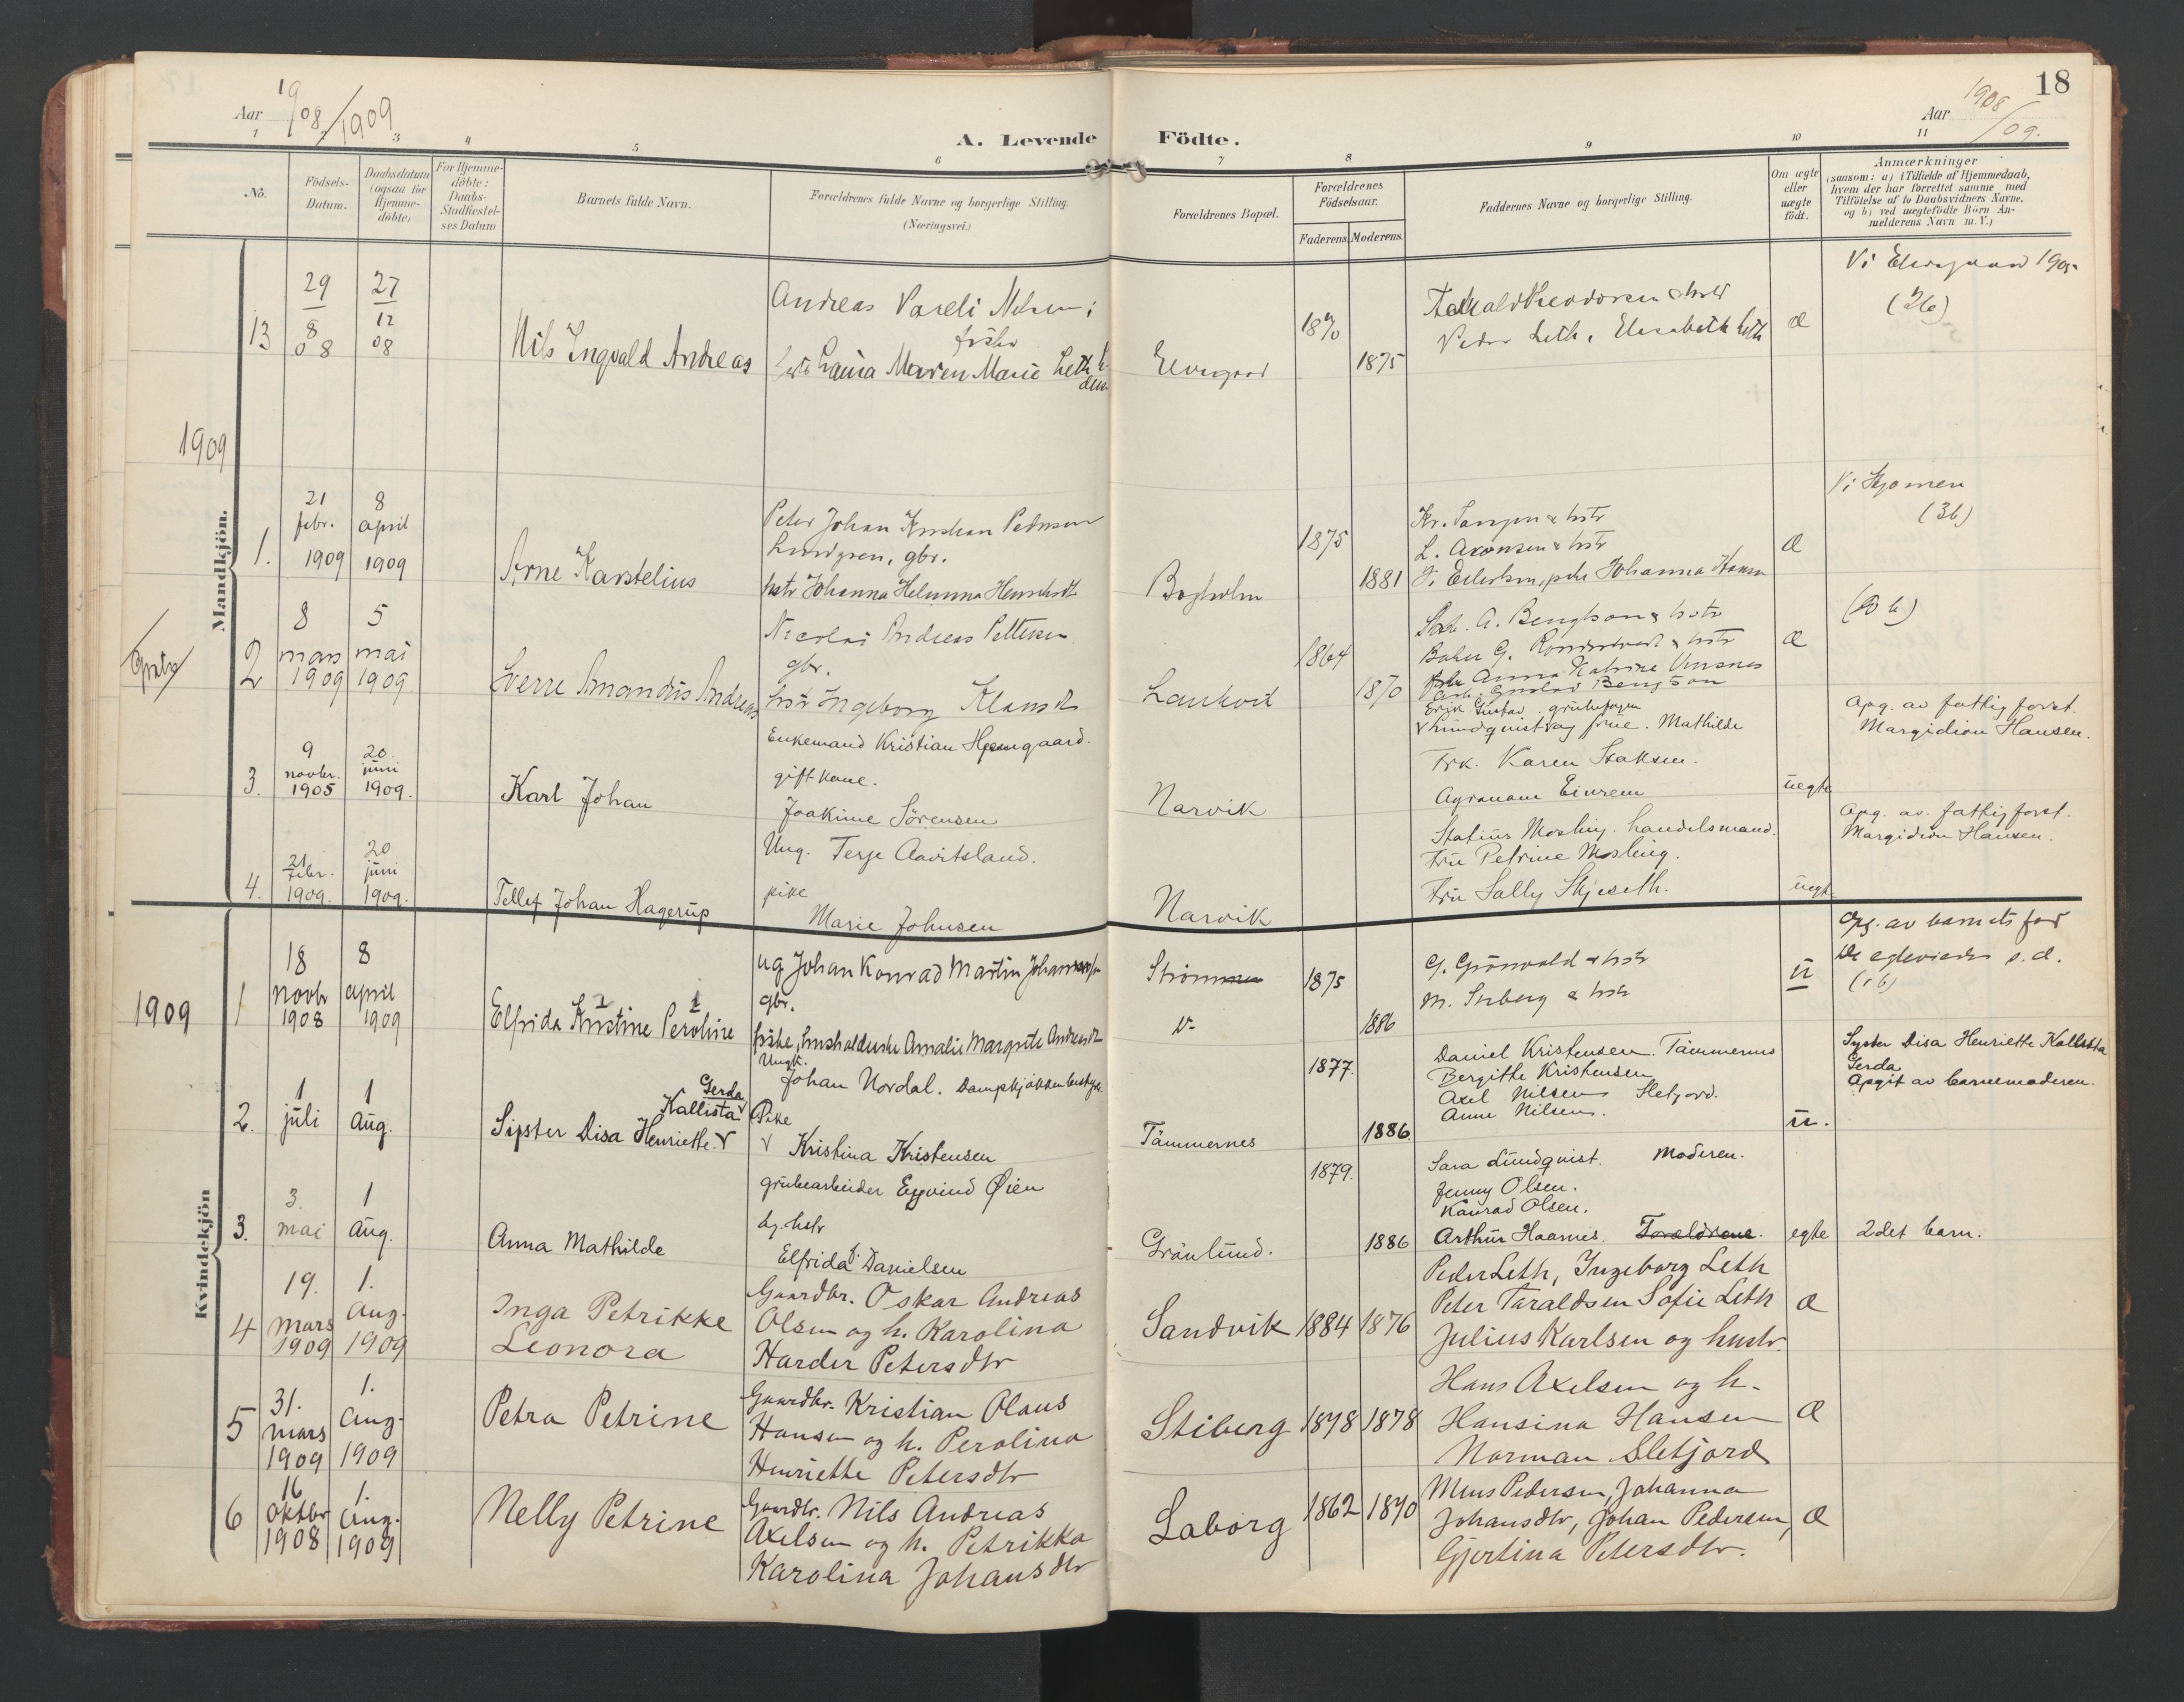 18
Aar 1908/1909
A. Levende Födte.
Aar 1908/09.
1 2 3 4 5 6 7 8 9 10 11
No.
Födsels-
Datum.
Daabsdatum
(ogsaa for
Hjemme-
döbte)
For Hjemme-
döbte:
Daabs-
Stadfæstel-
ses Datum
Barnets fulde Navn.
Forældrenes fulde Navne og borgerlige Stilling.
(Næringsvei.)
Forældrenes Bopæl.
Forældrenes
Födselsaar.
Faderens. Moderens.
Faddernes Navne og borgerlige Stilling.
Om ægte
eller
uægte
födt.
Anmærkninger
(saasom: a) i Tilfælde af Hjemmedaab,
hvem der har forrettet samme med
Tilföielse af to Daabsvidners Navne.
og b) ved uægtefödte Börn An-
melderens Navn m. V.)
Mandkjön.
13
29
8
08
27
12
08
Nils Ingvald Andreas
Andreas
fisker
Maren Marie Leth
1870
1875
Peder Leth, Elisabeth Leth
æ
(26)
1909
1.
21
febr.
1909
8
april
1909
Arne Karstelius
Peter Johan Kristian Pedersen
Lundgren, gbr.
hstr Johanna
1875
1881
L. Aronsen & hstr
Johanna Hansen
æ
(36)
2
8
mars
1909
5
mai
1909
Sverre Amandus Andreas
Nicolai Andreas Pettersen
gbr.
hstr Ingeborg
1864
1870
A. Bengtson & hstr
Anna Katrine
arb. Gustav Bengtson
æ
3.
9
novbr.
1905
20.
juni
1909.
Karl Johan
Enkemand Kristian
gift kone.
Joakime Sörensen
Narvik
Erik Gustav. grubefogen
Lundquist og frue. Mathilde
Frk. Karen Isaksen.
Agronom Einrem
uegte
Opg. av fattigforst.
Margidion Hansen.
4.
21
febr.
1909.
20
juni
1909.
Tellef Johan Hagerup
Ung. Terje Aavitsland.
pike
Marie Johnsen
Narvik
Statius Mosling. handelsmand.
Fru Petrine Mosling.
Fru Sally Skjeseth.
uegte
Opg. av. fattigforst.
Margidion Hansen.
Kvindekjön
1909
1
18
novbr
1908
8
april
1909
Elfrida Kristine Peroline
ug Johan Konrad Martin
gbr.
Amalie Margrete
1875
1886
G. Grönvold & hstr
u
Opg. av barnets far
2.
1
juli
1
aug.
Gerda
Kallista
Sipster Disa Henriette.
Ungk.
Johan Nordal.
Pike
Kristina Kristensen
Tömmernes
1877.
1886.
Daniel Kristensen. Tömmernes
Bergitte Kristensen
Axel Nilsen Sletjord.
Anne Nilsen.
u.
Syster Disa Henriette Kallista
Gerda
Opgit av barnemoderen.
3.
3.
mai
1
aug.
Anna Mathilde
grubearbeider Eyvind Øien
og. hstr
Elfrida f. Danielsen
Grönlund.
1879.
1886
Sara Lundquist. Moderen.
Jenny Olsen.
Konrad Olsen.
Arthur Haarnes. Forældrene.
egte
2det barn.
4
19.
mars
1909
1.
Aug.
1909
Inga Petrikke
Leonora
Gaardbr. Oskar Andreas
Olsen og h. Karolina
Harder Petersdtr
Sandvik
1884
1876
Peder Leth, Ingeborg Leth
Peter Taraldsen Sofie Leth
Julius Karlsen og hustr.
æ
5
31.
mars
1909
1.
aug.
1909
Petra Petrine
Gaardbr. Kristian Olaus
Hansen og h. Perolina
Henriette Petersdtr
Stiberg
1878
1878
Hans Axelsen og h.
Hansina Hansen
Norman Sletjord
æ
6
16
oktbr
1908
1.
aug.
1909
Nelly Petrine
Gaardbr. Nils Andreas
Axelsen og h. Petrikka
Karolina Johansdtr
Laborg
1862
1870
Mons Pedersen, Johanna
Johansdtr, Johan Pedersen,
Gjertina Petersdtr.
æ